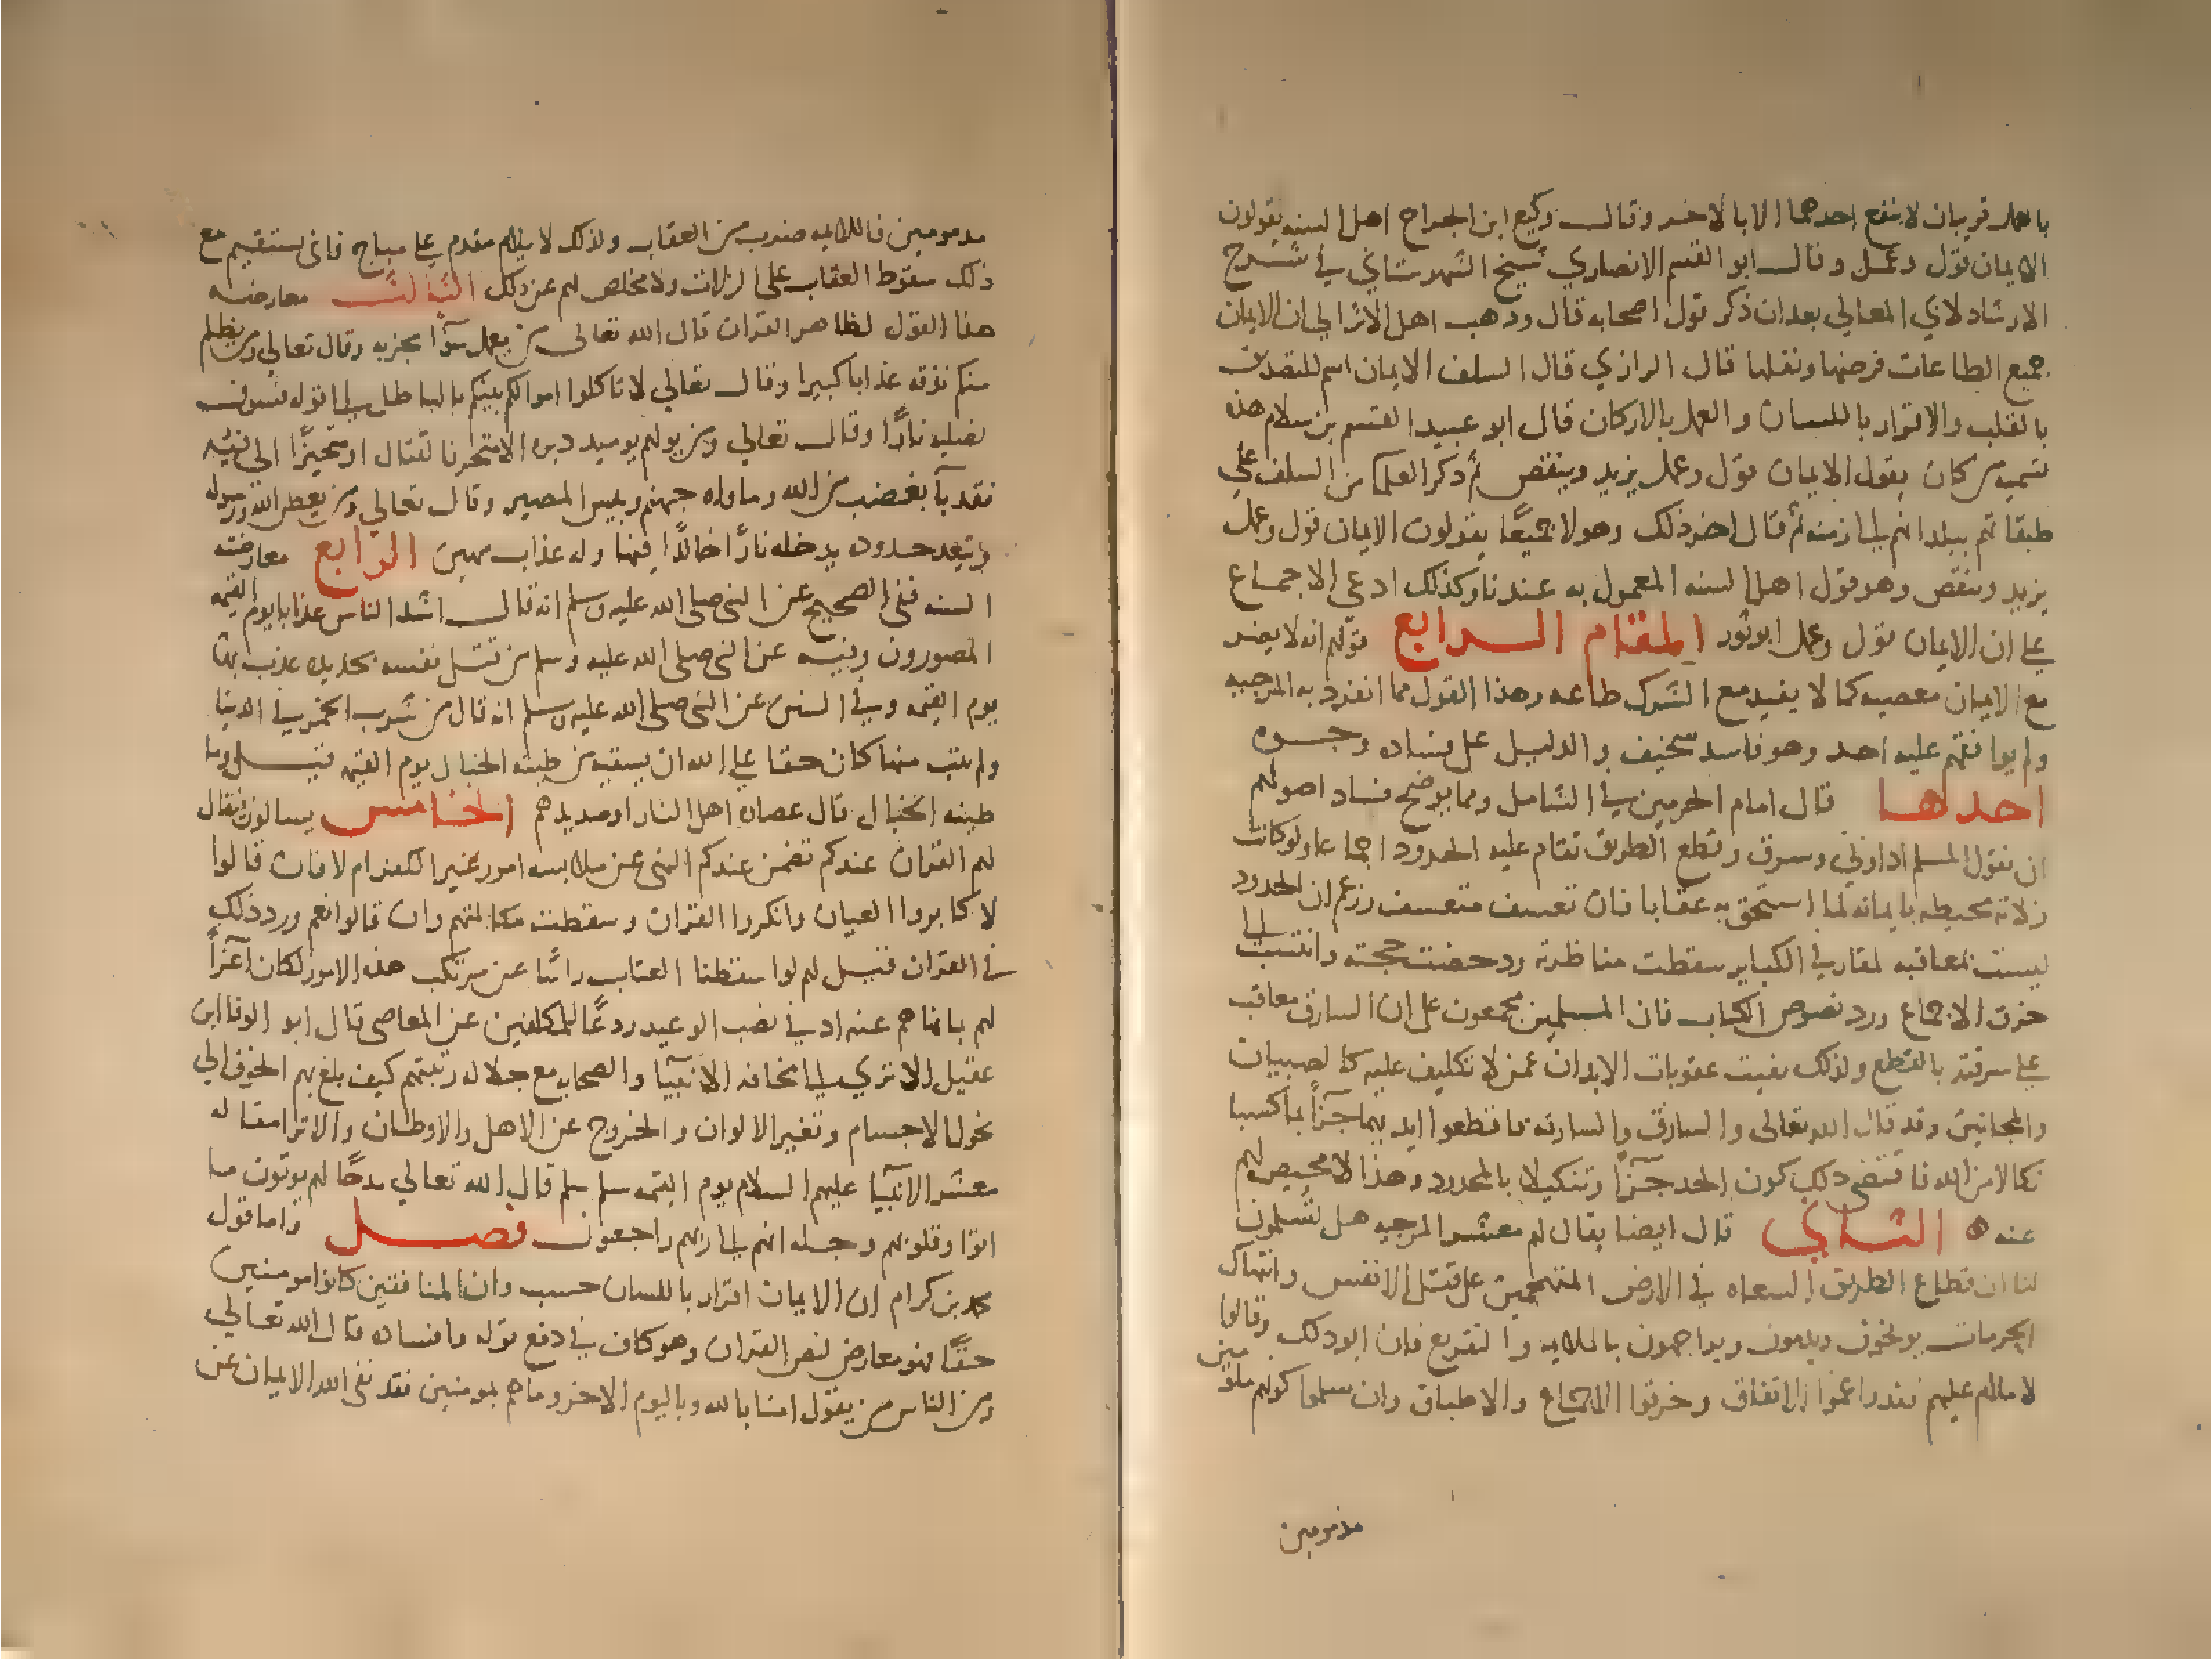 بالعمل قرينان لا ينفع احدهما الا بالاخر وقال وكيع ابن الجراح اهل السنه يقولون
الايمان قول وعمل وقال ابو القسم الانصاري شيخ الشهرستاني في شرح
الارشاد لابي المعالي بعد ان ذكر قول اصحابه قال وذهب اهل الاثر الي ان الايمان
جميع الطاعات فرضها ونفلها قال الرازي قال السلف الايمان اسم للتصديق
بالقلب والاقرار باللسان والعمل بالاركان قال ابو عبيد القسم بن سلام هذه
تسميه من كان يقول الايمان قول وعمل يزيد وينقص ثم ذكر العلما من السلف علي
طبقاتهم ببلدانهم الي ازمنه ثم قال اخر ذلك وهولا جميعًا يقولون الايمان قول وعمل
يزيد وينقص وهو قول اهل السنه المعمول به عندنا وكذلك ادعي الاجماع
علي ان الايمان قول وعمل ابو ثور المقام الرابع قولهم انه لا يضر
مع الايمان معصيه كما لا يفيد مع الشرك طاعه وهذا القول مما انفرد به المرجيه
ولم يوافقهم عليه احد وهو فاسد سخيف والدليل علي فساده وجوه
احدها قال امام الحرمين في الشامل ومما يوضح فساد اصولهم
ان نقول المسلم اذا زني وسرق وقطع الطريق تقام عليه الحدود اجماعا ولو كانت
زلاته محيطه بايمانه لما استحق به عقابا فان تعسف متعسف وزعم ان الحدود
ليست بمعاقبه لمقارفي الكباير سقطت مناظرته ودحضت حجته وانتسب الي
خرق الاجماع ورد نصوص الكتاب فان المسلمين مجمعون علي ان السارق معاقب
علي سرقته بالقطع ولذلك نفيت عقوبات الابدان عمن لا تكليف عليه كالصبيان
والمجانين وقد قال الله تعالى والسارق والسارقه فاقطعوا ايديهما جزآً بما كسبا
نكالا من الله فاقتضي ذلك كون الحد جزآ وتنكيلا بالمحدود وهذا لا محيص لهم
عنه ه الثاني قال ايضا يقال لهم معشر المرجيه هل تسلمون
لنا ان قطاع الطريق السعاه في الارض المتهجمين علي قتل الانفس وانتهاك
الحرمات يوبخون ويذمون ويواجهون بالملاميه والتقريع فان ابوا ذلك وقالوا
لا ملام عليهم فقد راغموا الاتفاق وخرقوا الاجماع والاطباق وان سلموا كونهم ملومين
مذمومين
مذمومين فالملاميه ضرب من العقاب ولذلك لا يلام مقدم علي مباح فاني يستقيم مع
ذلك سقوط العقاب علي الزلات ولا مخلص لهم عن ذلك الثالث معارضه
هذا القول لظاهر القران قال الله تعالى من يعمل سوًا يجز به وقال تعالي ومن يظلم
منكم نذقه عذابا كبيرا وقال تعالي لا تاكلوا اموالكم بينكم بالباطل الي قوله فسوف
نصليه نارًا وقال تعالي ومن يولهم يوميد دبره الا متحرفا لقتال او متحيزًا الى فئه
فقد بآ بغضب من الله وماواه جهنم وبيس المصير وقال تعالي ومن يعص الله ورسوله
ويتعد حدوده يدخله نارًا خالدًا فيها وله عذاب مهين الرابع معارضته
السنه ففي الصحيح عن النبي صلى الله عليه وسلم انه قال اشد الناس عذابا يوم القيمه
المصورون وفيه عن النبي صلى الله عليه وسلم من قتل نفسه بحديده عذب بها
يوم القيمه وفي السنن عن النبي صلى الله عليه وسلم انه قال من شرب الخمر في الدنيا
ولم يتب منها كان حقا علي الله ان يسقيه من طينه الخبال يوم القيمه قيل وما
طينه الخبال قال عصاره اهل النار او صديدهم الخامس يسالون فيقال
لهم القران عندكم تضمن عندكم النهي عن ملابسه امور غير الكفر ام لا فان قالوا
لا كابروا العيان وانكروا القران وسقطت مكالمتهم وان قالوا نعم ورد ذلك
في القران قيل لهم لو اسقطنا العتاب راسًا عن مرتكب هذه الامور لكان اغرآً
لهم بما نهاهم عنه اذ في نصب الوعيد ردعًا للمكلفين عن المعاصي قال ابو الوفا ابن
عقيل الا تري الي اخافه الانبيآ والصحابه مع جلاله رتبتهم كيف بلغ بهم الخوف الي
نحول الاجسام وتغير الالوان والخروج عن الاهل والاوطان والا ترا مقاله
معشر الانبيآ عليهم السلام يوم القيمه سلم سلم قال الله تعالي مدحًا لهم يوتون ما
اتوا وقلوبهم وجله انهم الي ربهم راجعون فصل واما قول
محمد بن كرام ان الايمان اقرار باللسان حسب وان المنافقين كانوا مومنين
حقًا فهو معارض لنص القران وهو كاف في دفع قوله وافساده قال الله تعالي
ومن الناس من يقول امنا بالله وباليوم الاخر وما هم بمومنين فقد نفي الله الايمان عن